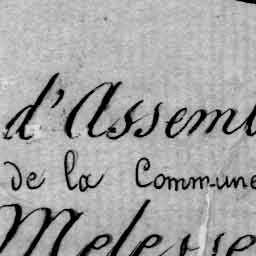 d'Assem
de la Commune
Melesse